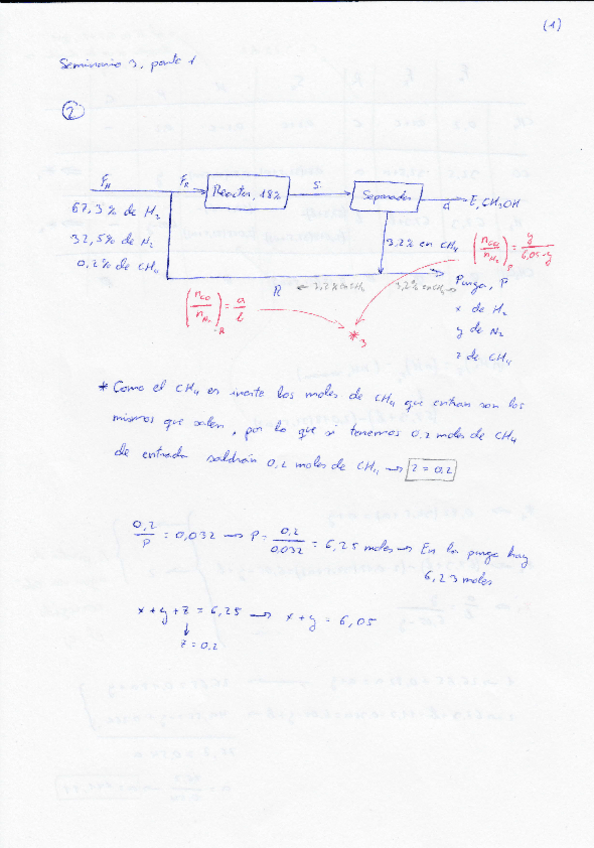 (1)
Seminario 3, parte 1
2
FA
FR
Reactor, 18%
S
Separador
E, CH3OH
67,3% de H2
32,5% de N2
0,2% de CH4
3,2% en CH4
R
← 3,2% en CH4
3,2% en CH4 →
Purga, P
x de H2
y de N2
z de CH4
(nCO/nN2)R = a/b
(nCO/nN2)P = y/6,05-y
*3
* Como el CH4 es inerte los moles de CH4 que entran son los
mismos que salen, por lo que si tenemos 0,2 moles de CH4
de entrada saldrán 0,2 moles de CH4 → z = 0,2
0,2/P = 0,032 → P = 0,2/0,032 = 6,25 moles → En la purga hay
6,25 moles
x + y + z = 6,25 → x + y = 6,05
z = 0,2